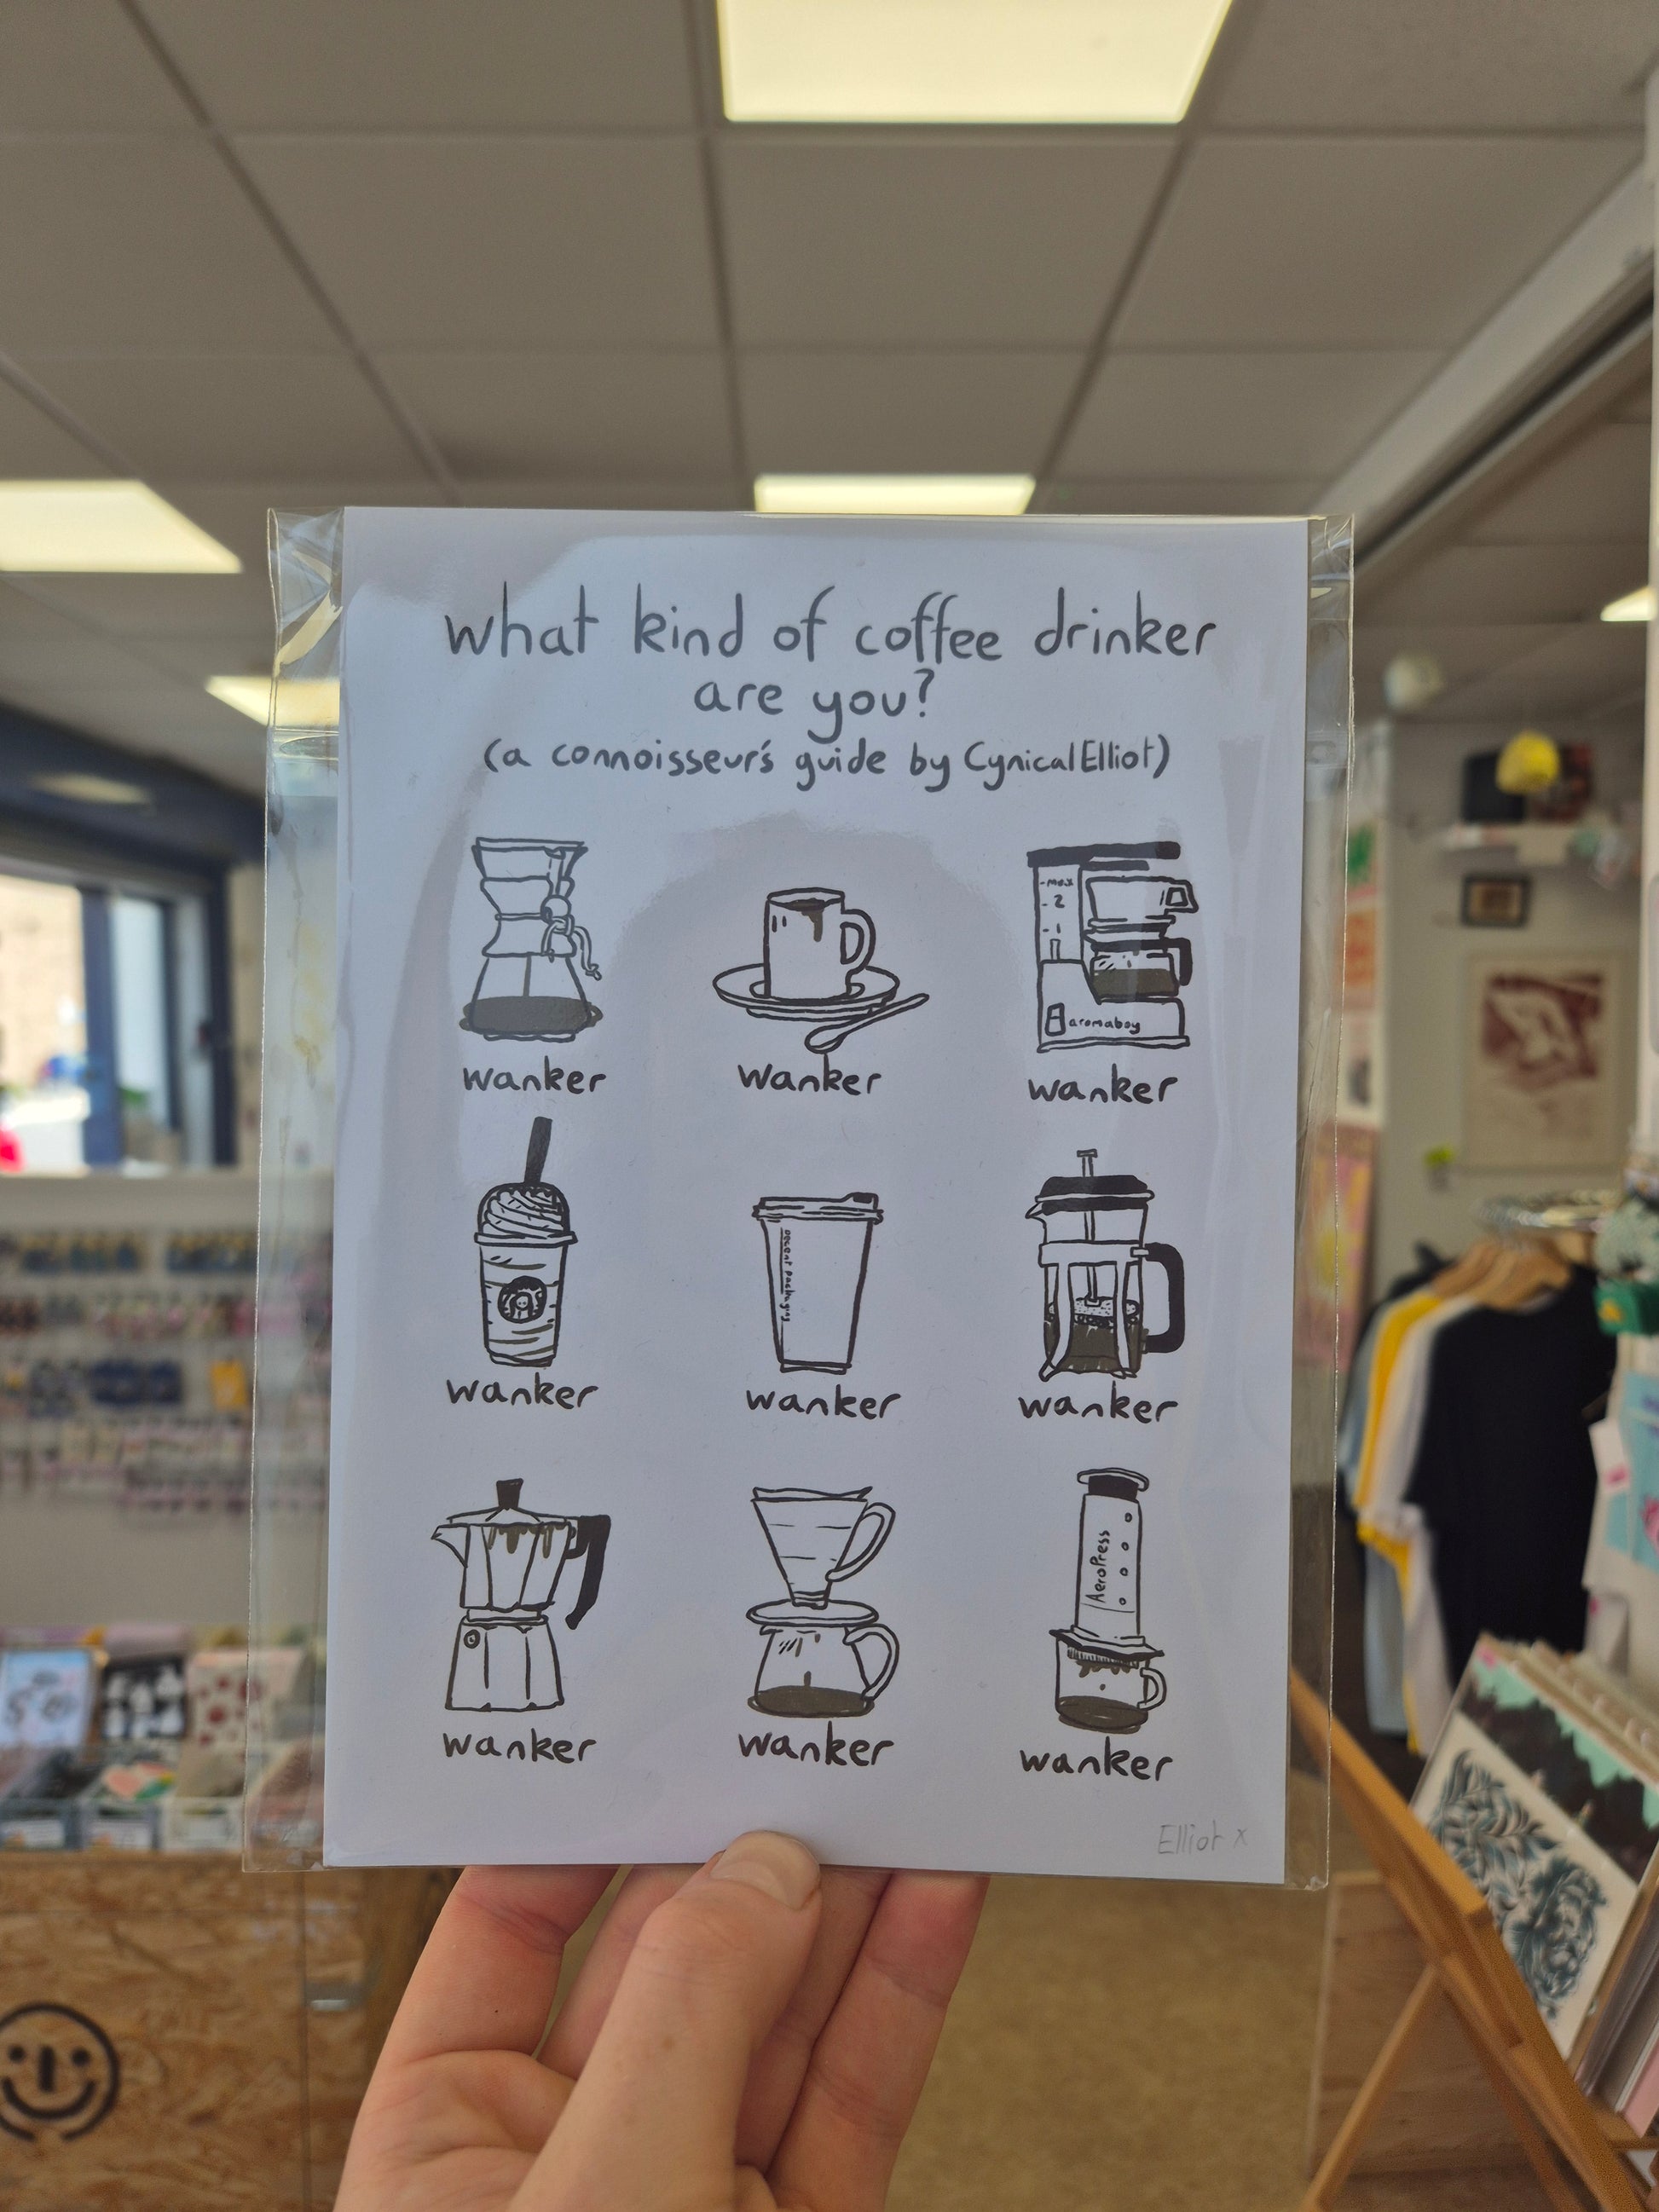 what kind of coffee drinker
are you?
(a connoisseur's guide by CynicalElliot)
-max
- 2
- 1
aromaboy
wanker
wanker
wanker
decent packaging
wanker
wanker
wanker
AeroPress
wanker
wanker
wanker
Elliot x